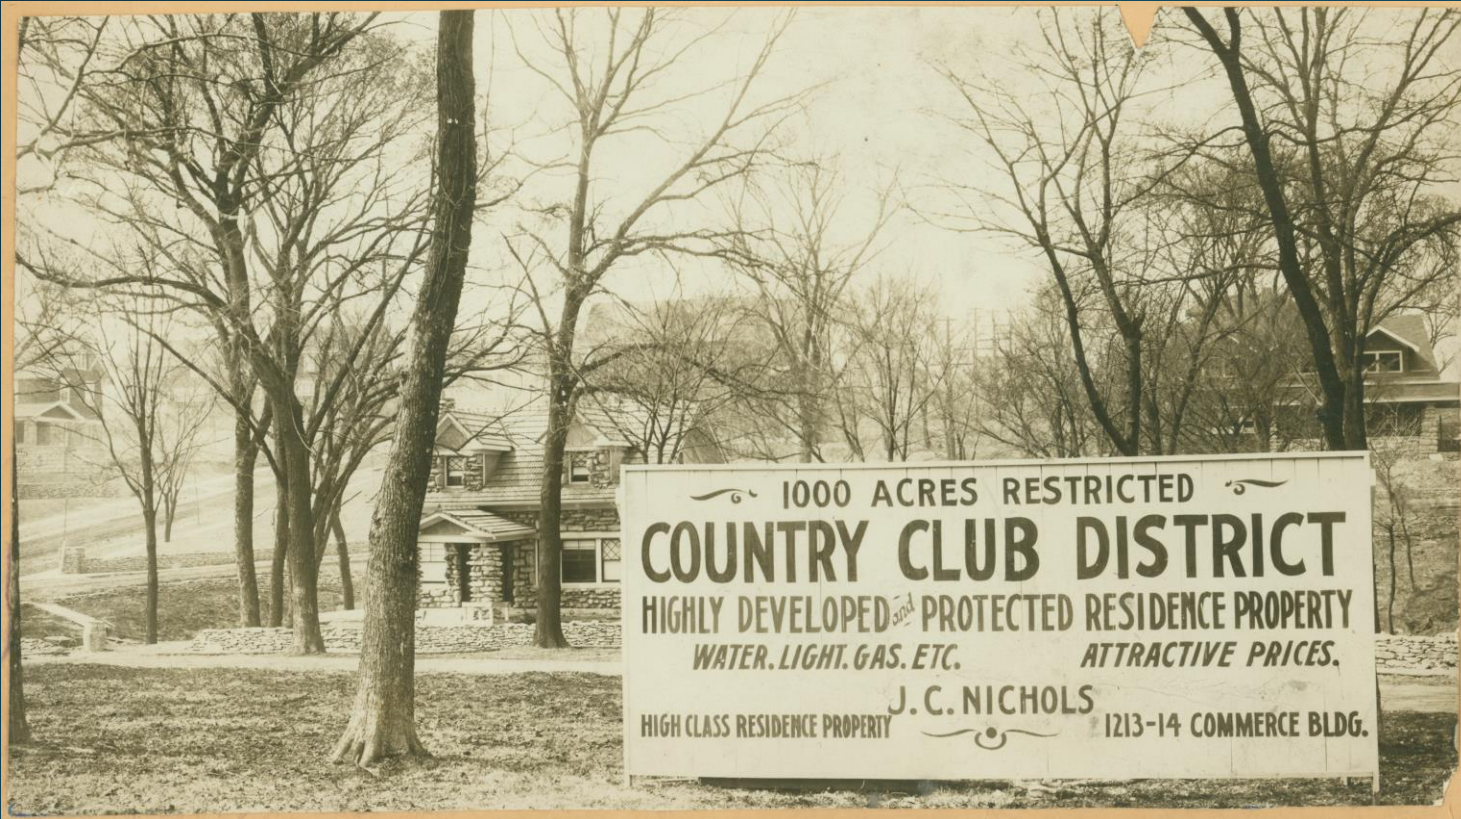 1000 ACRES RESTRICTED
COUNTRY CLUB DISTRICT
HIGHLY DEVELOPED and PROTECTED RESIDENCE PROPERTY
WATER. LIGHT. GAS. ETC. ATTRACTIVE PRICES.
J. C. NICHOLS
HIGH CLASS RESIDENCE PROPERTY 1213-14 COMMERCE BLDG.